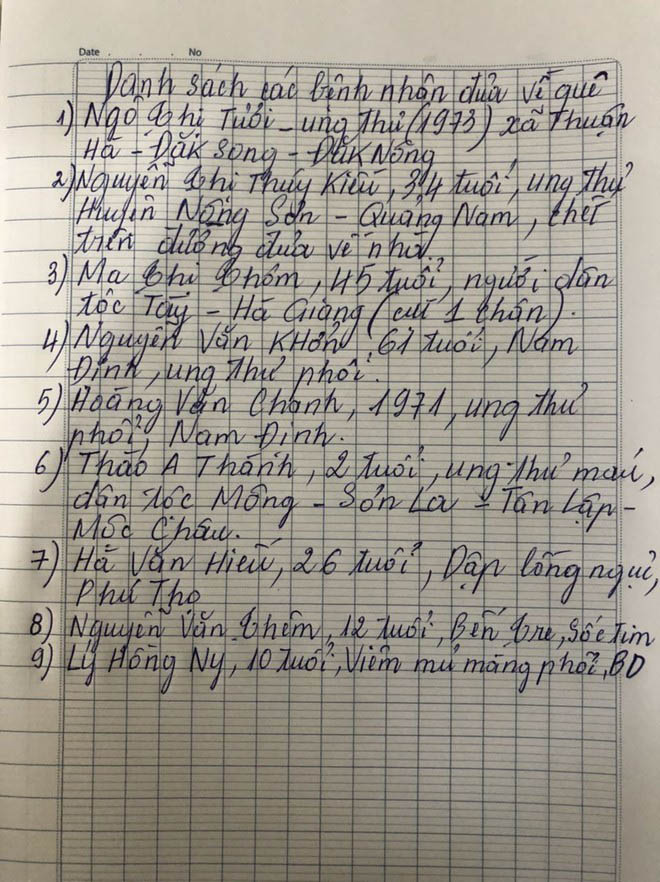 Date . . . No
Danh sách các bệnh nhân đưa về quê
1) Ngô Thị Tưởi - ung thư (1973) xã Thuận
Hà - Đăk Song - Đăk Nông
2) Nguyễn Thị Thúy Kiều, 34 tuổi, ung thư
Huyện Nông Sơn - Quảng Nam, chết
trên đường đưa về nhà.
3) Ma Thị Thơm, 45 tuổi, người dân
tộc Tày - Hà Giang (cưt 1 chân).
4) Nguyễn Văn Khởn, 61 tuổi, Nam
Định, ung thư phổi.
5) Hoàng Văn Chanh, 1971, ung thư
phổi, Nam Định.
6) Thào A Thánh, 2 tuổi, ung thư máu,
dân tộc Mông - Sơn La - Tân Lập -
Mộc Châu.
7) Hà Văn Hiếu, 26 tuổi, Dập lồng ngực,
Phú Thọ
8) Nguyễn Văn Thêm, 12 tuổi, Bến Tre, Sốc tim
9) Lý Hồng Ny, 10 tuổi, Viêm mủ màng phổi, BD